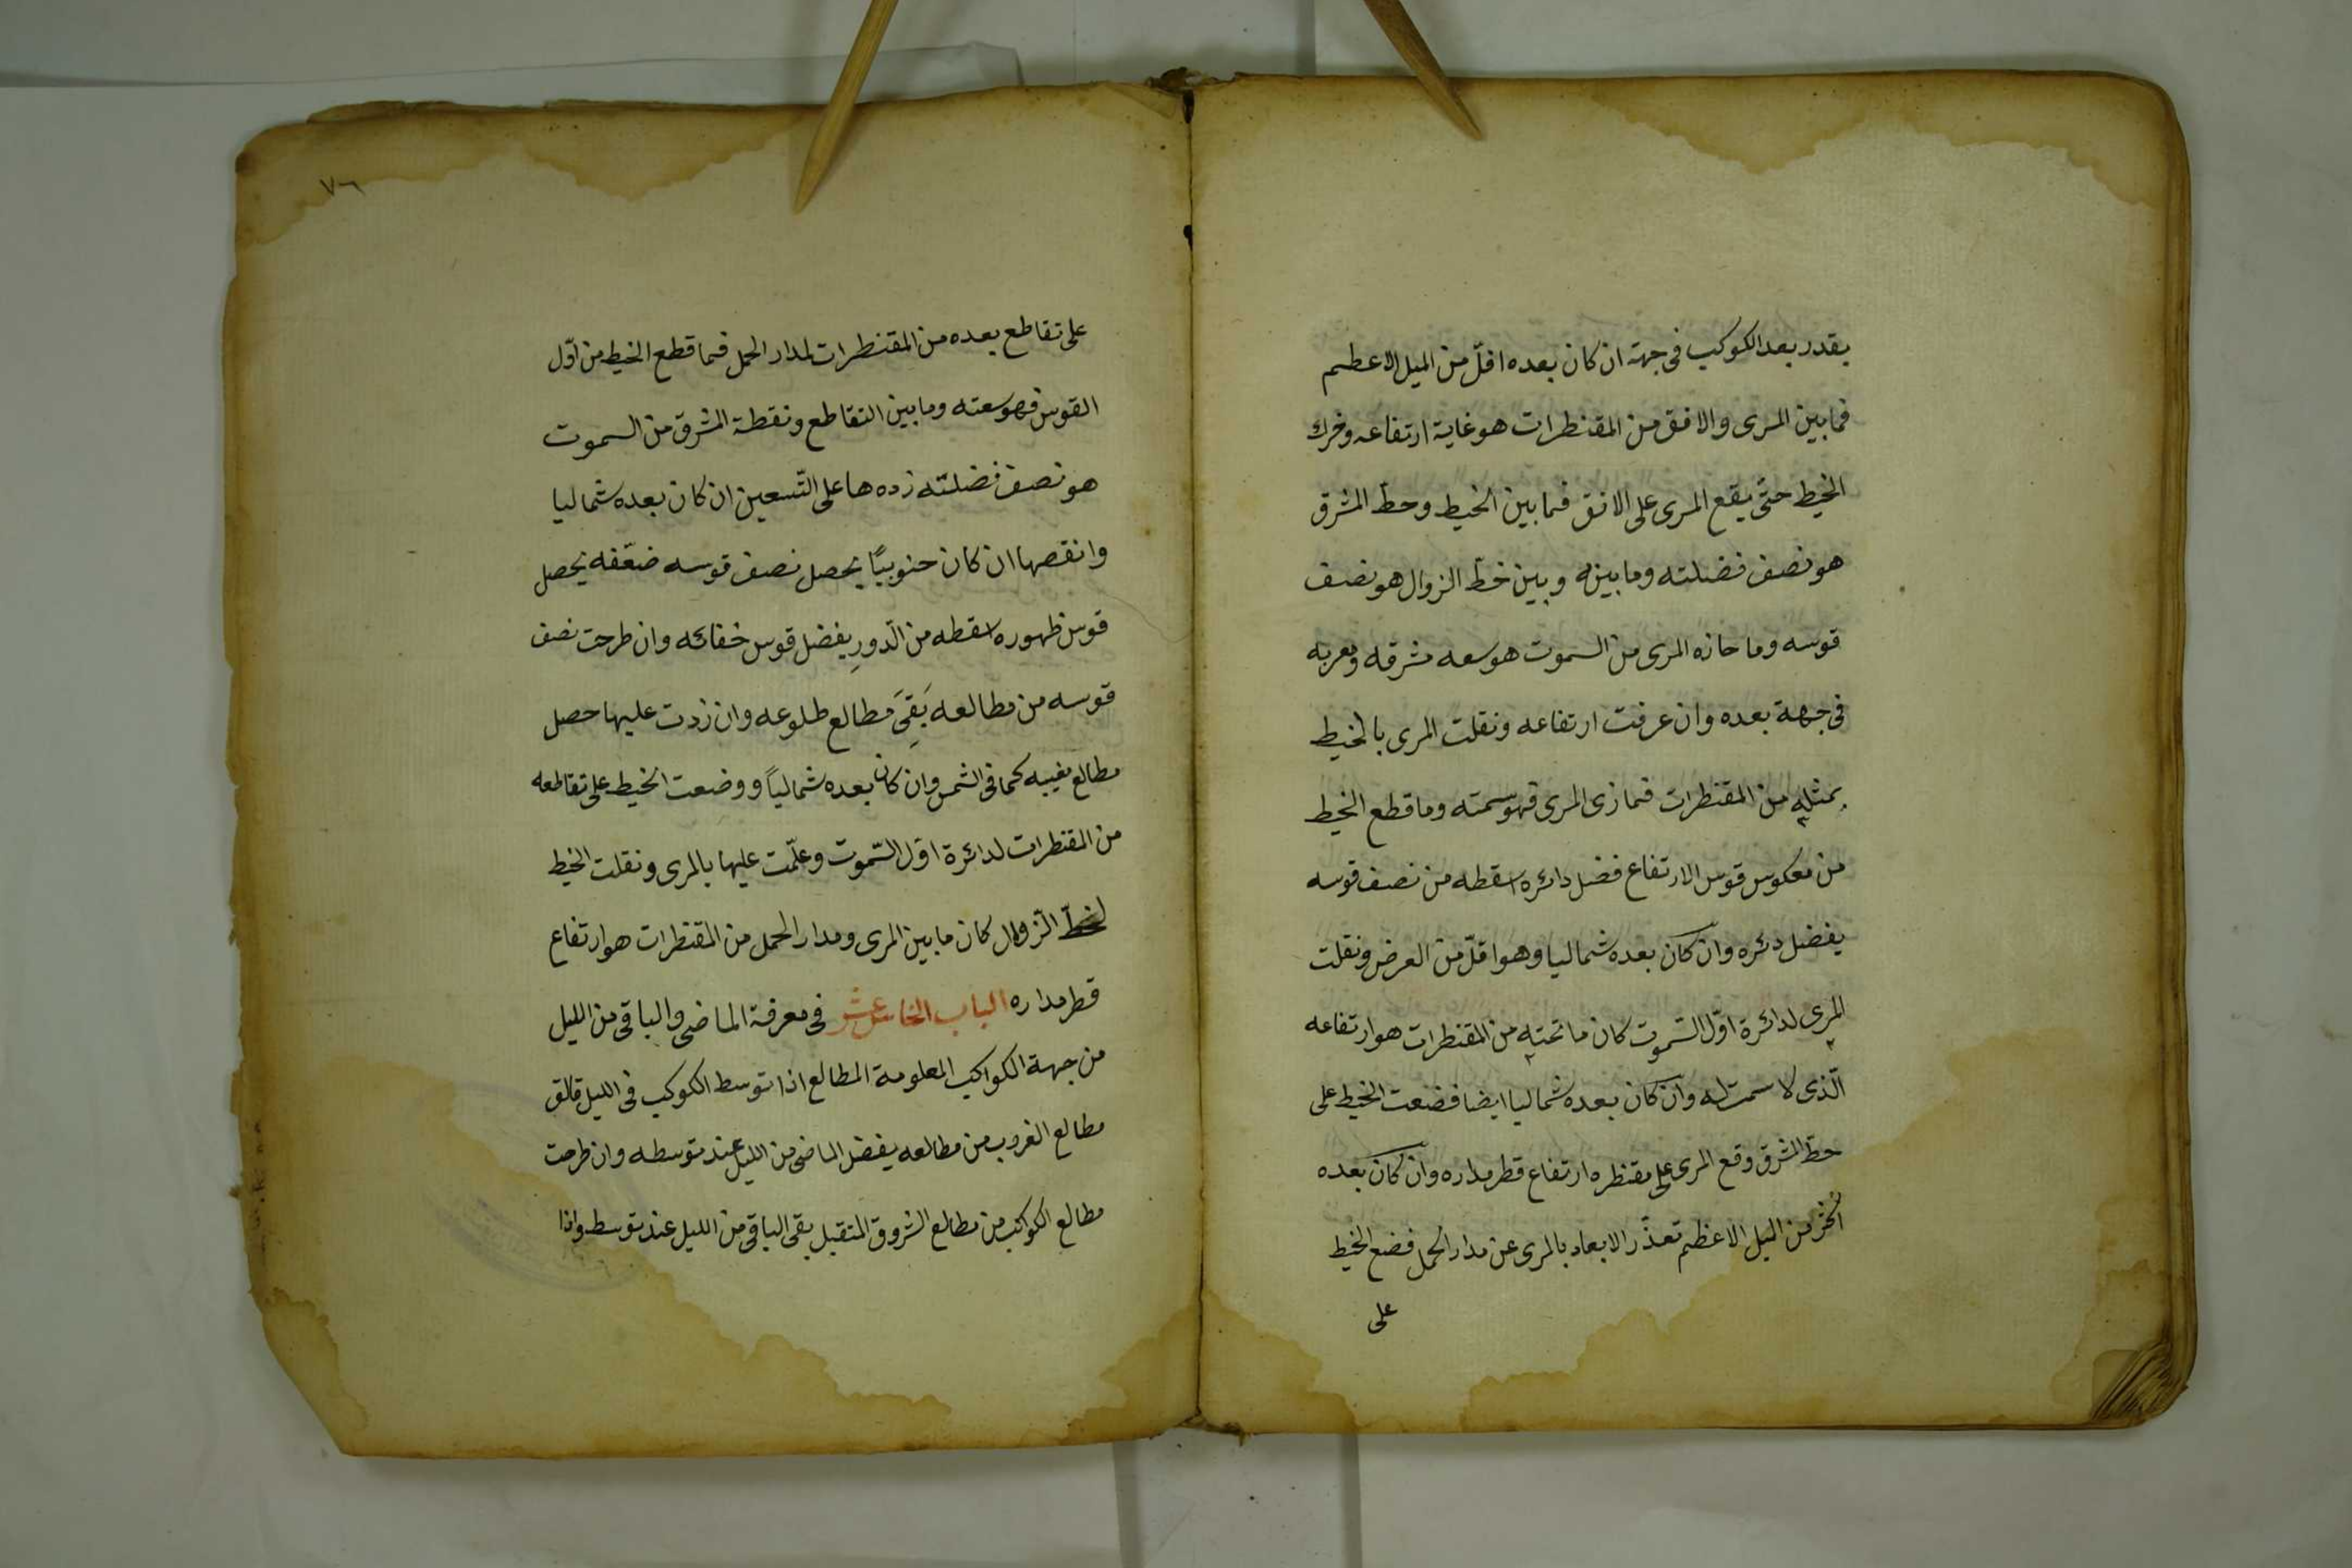 بقدر بعد الكوكب فى جهته ان كان بعده اقلّ من الميل الاعظم
فما بين المرى والافق من المقنطرات هو غاية ارتفاعه وحرك
الخيط حتّى يقع المرى على الافق فما بين الخيط وخط المشرق
هو نصف فضلته وما بينه وبين خطّ الزوال هو نصف
قوسه وما حازه المرى من السموت هو سعه مشرقه ومغربه
فى جهة بعده وان عرفت ارتفاعه ونقلت المرى بالخيط
بمثله من المقنطرات فما زى المرى فهو سمته وما قطع الخيط
من معكوس قوس الارتفاع فضل دائره اسقطه من نصف قوسه
يفضل دئره وان كان بعده شماليا وهو اقلّ من العرض ونقلت
المرى لدائرة اوّل السّموت كان ما تحته من المقنطرات هو ارتفاعه
الّذى لا سمت له وان كان بعده شماليا ايضا فضعت الخيط على
خط المشرق وقع المرى على مقنطره ارتفاع قطر مداره وان كان بعده
اكثر من الميل الاعظم تعذّر الابعاد بالمرى عن مدار الحمل فضع الخيط
على
٧٦
على تقاطع بعده من المقنطرات لمدار الحمل فما قطع الخيط من اوّل
القوس فهو سعته وما بين التقاطع ونقطة المشرق من السموت
هو نصف فضلته زده ها على التّسعين ان كان بعده شماليا
وانقصها ان كان جنوبيّا يحصل نصف قوسه ضعّفه يحصل
قوس ظهوره اسقطه من الدّورِ يفضل قوس خفائه وان طرحت نصف
قوسه من مطالعه بَقِىَ مطالع طلوعه وان زدت عليها حصل
مطالع مغيبه كما فى الشمس وان كان بعده شمالياً ووضعت الخيط على تقاطعه
من المقنطرات لدائرة اوّل السّموت وعلّمت عليها بالمرى ونقلت الخيط
لخطّ الزّوال كان ما بين المرى ومدار الحمل من المقنطرات هو ارتفاع
قطر مداره الباب الخامس عشر فى معرفة الماضى والباقى من الليل
من جهة الكواكب المعلومة المطالع اذا توسط الكوكب فى الليل فالق
مطالع الغروب من مطالعه يفضل الماضى من الليل عند توسطه وان طرحت
مطالع الكواكب من مطالع الشروق المتقبل بقى الباقى من الليل عند توسطه واذا